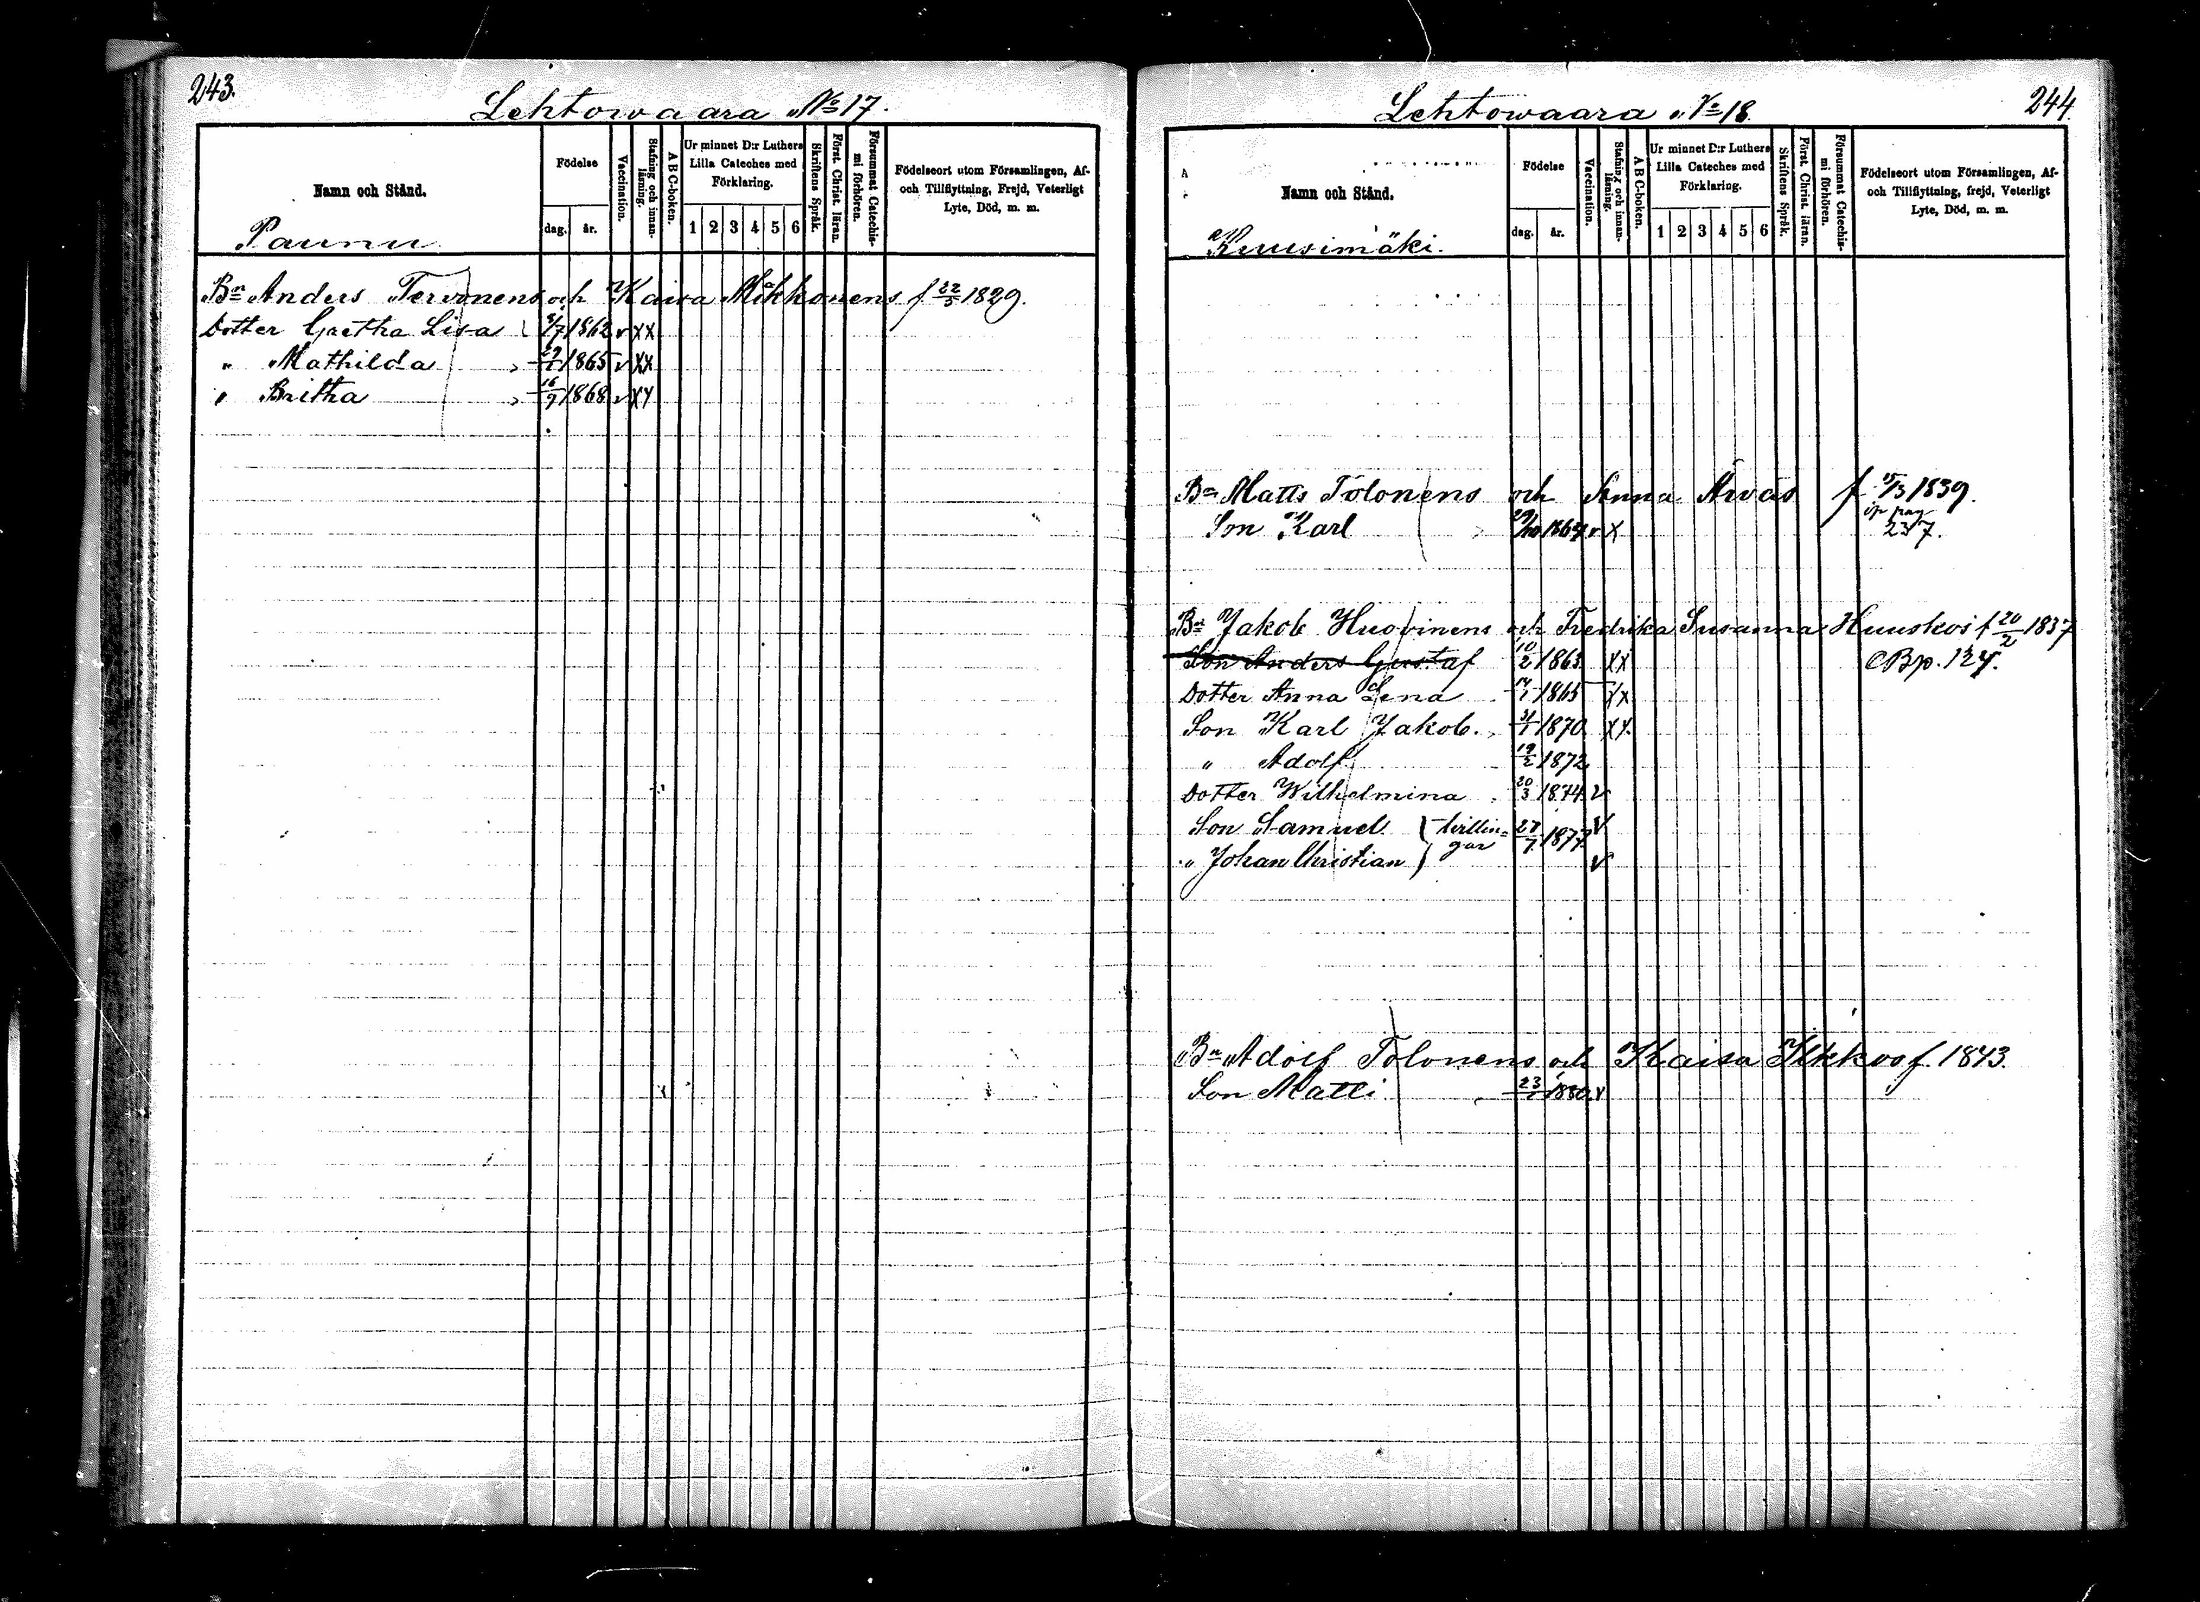 243.
Lehtowaara No 17.
Namn och Stånd.
Födelse
dag.
år.
Vaccination.
Stafning och innan-
läsning.
A B C-boken.
Ur minnet D:r Luthers
Lilla Cateches med
Förklaring.
1 2 3 4 5 6
Skriftens Språk.
Först. Christ. läran.
Försummat Catechis-
mi förhören.
Födelseort utom Församlingen, Af-
och Tillflyttning, Frejd, Veterligt
Lyte, Död, m. m.
Paunu
Bn Anders Tervonens och Kaisa Mikkonens f 22/5 1829.
Dotter Gretha Lisa /7 1862 v XX
" Mathilda 1865 v XX
" Britha 16/9 1868 v XX
244.
Lehtowaara No 18.
Namn och Stånd.
Födelse
dag.
år.
Vaccination.
Stafning och innan-
läsning.
A B C-boken.
Ur minnet D:r Luthers
Lilla Cateches med
Förklaring.
1 2 3 4 5 6
Skriftens Språk.
Först. Christ. läran.
Försummat Catechis-
mi förhören.
Födelseort utom Församlingen, Af-
och Tillflyttning, frejd, Veterligt
Lyte, Död, m. m.
Kuusimäki.
Bn Matts Tolonens och Anna Arvas f 15/3 1839.
Son Karl 29/10 v X
237.
Bn Jakob Huovinens och Fredrika Susanna Huuskos f 20/2 1837
Son Anders Gustaf 10/2 1863 XX
Dotter Anna Lena 14/1 1865 XX
Son Karl Jakob. 31/1 1870 XX
" Adolf 19/2 1872
Dotter Wilhelmina 20/3 1874 v
Son Samuel } tvillin- 27/7 1877 v
" Johan Christian } gar v
Bn Adolf Tolonens och Kaisa Ilkkos f. 1843.
Son Matti 23 1880 v